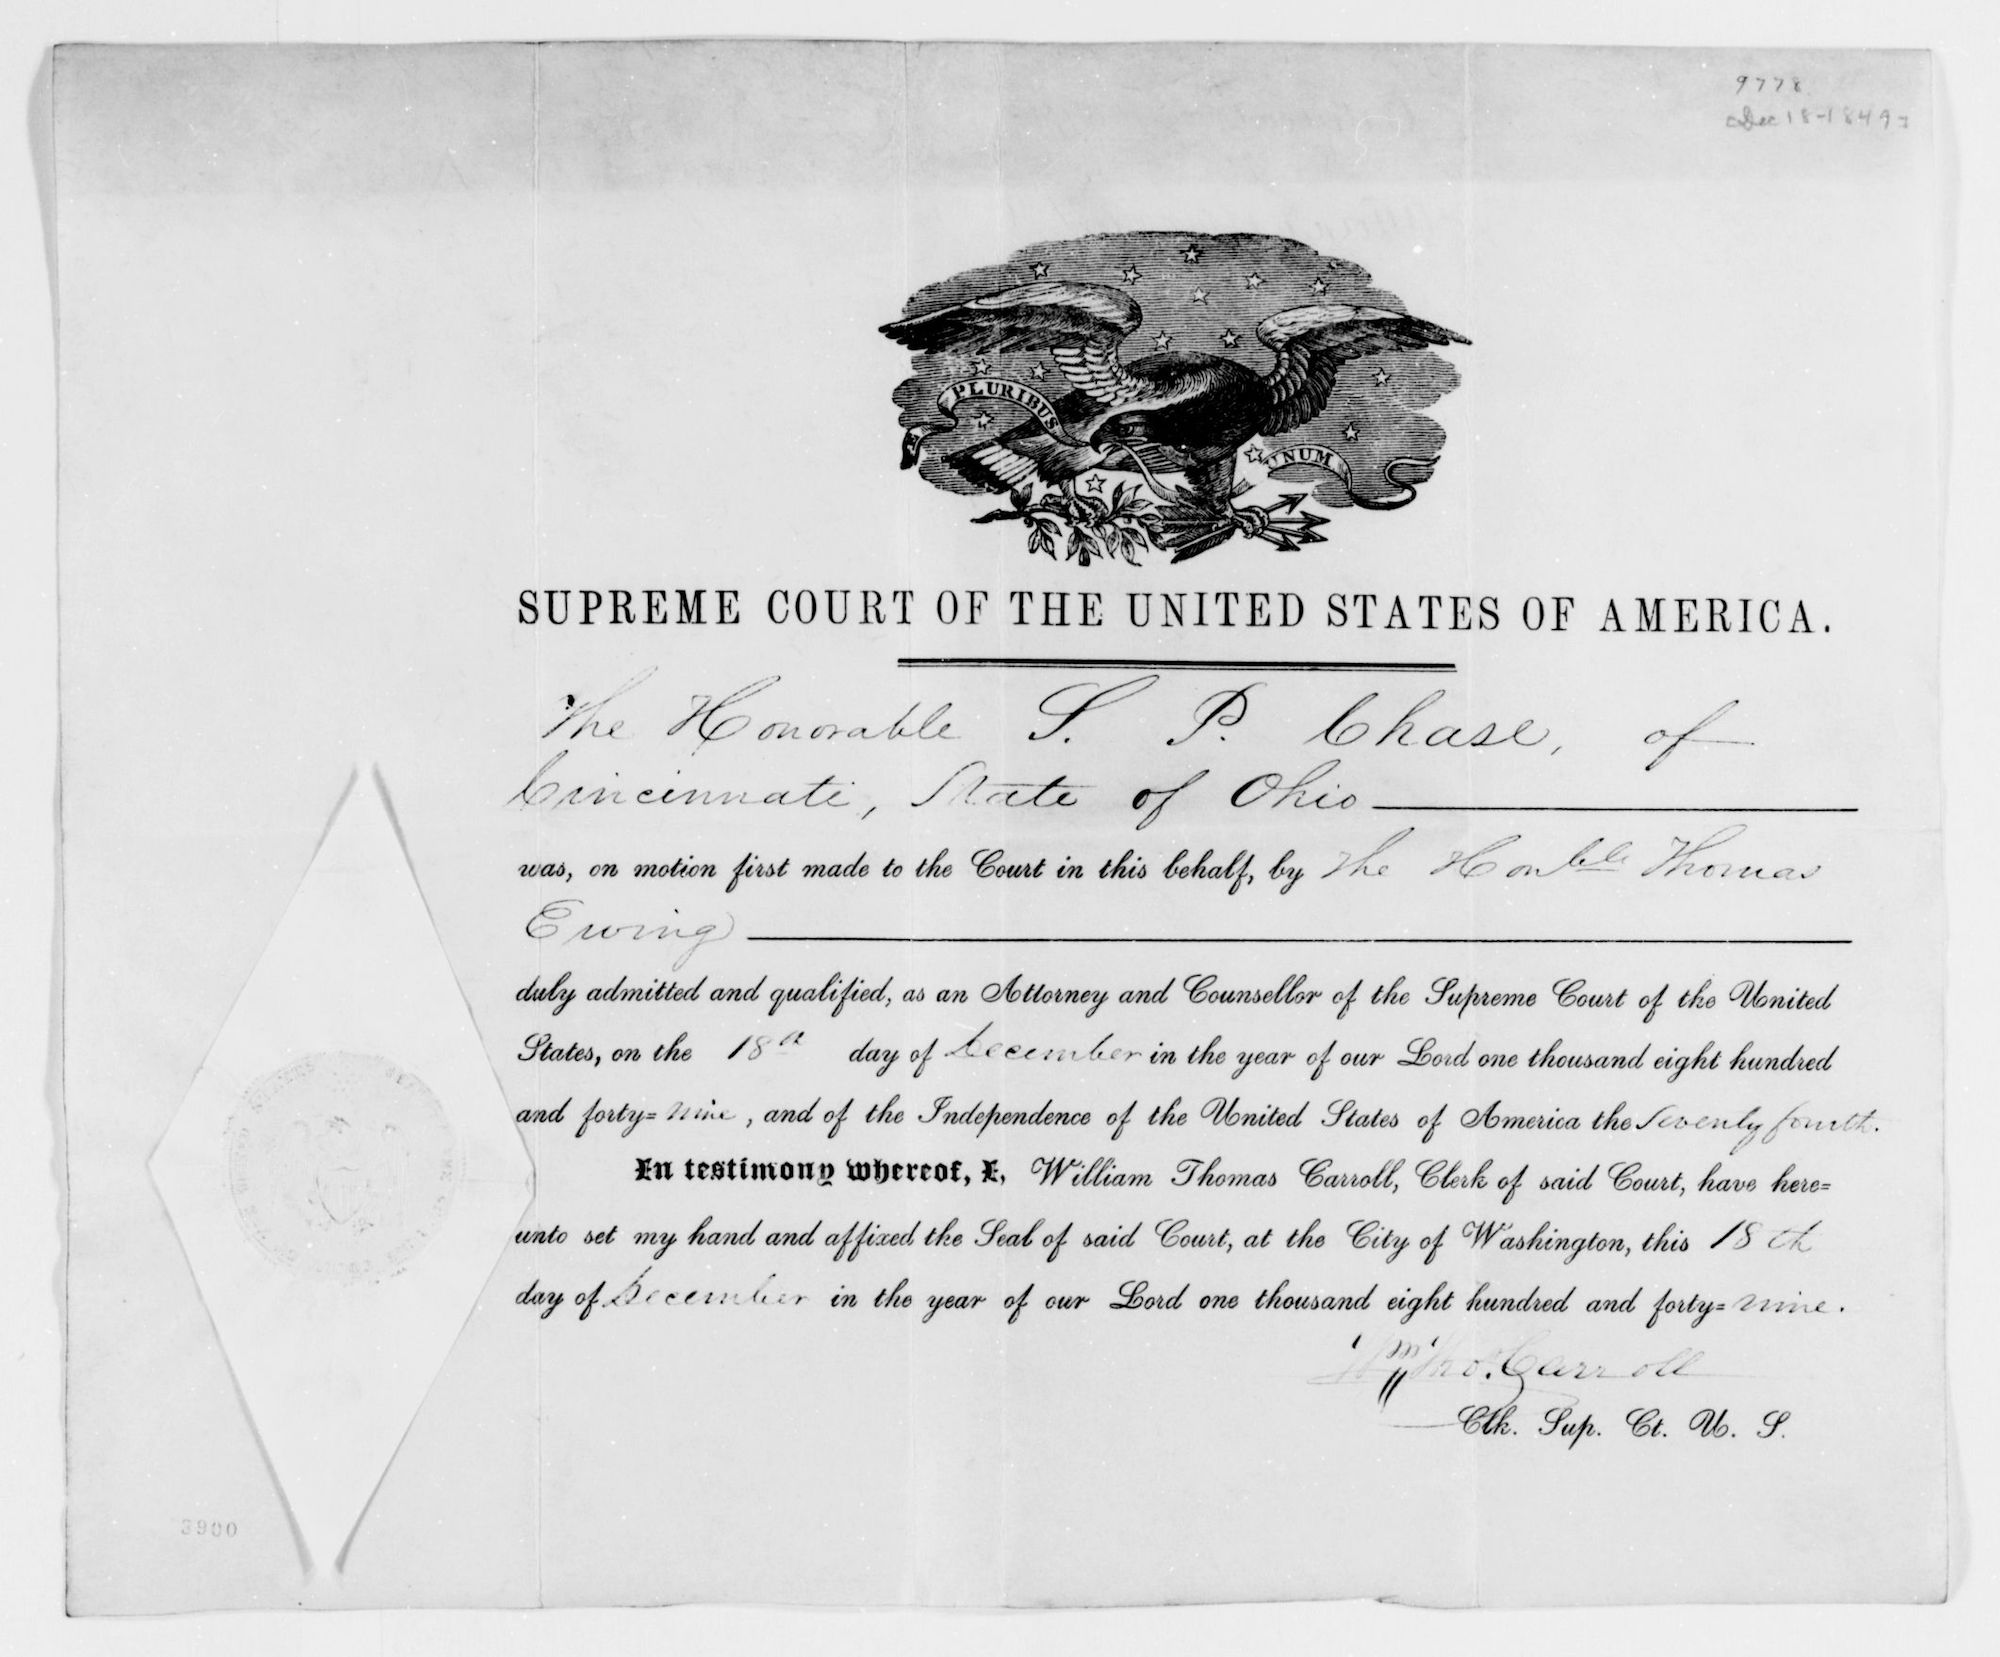 9778
Dec 18-1849
E PLURIBUS UNUM
SUPREME COURT OF THE UNITED STATES OF AMERICA.
The Honorable S. P. Chase, of
Cincinnati, State of Ohio
was, on motion first made to the Court in this behalf, by The Honble Thomas
Ewing
duly admitted and qualified, as an Attorney and Counsellor of the Supreme Court of the United
States, on the 18th day of December in the year of our Lord one thousand eight hundred
and forty=nine, and of the Independence of the United States of America the Seventy fourth.
In testimony whereof, I, William Thomas Carroll, Clerk of said Court, have here=
unto set my hand and affixed the Seal of said Court, at the City of Washington, this 18th
day of December in the year of our Lord one thousand eight hundred and forty=nine.
Wm Tho. Carroll
Clk. Sup. Ct. U. S.
3900